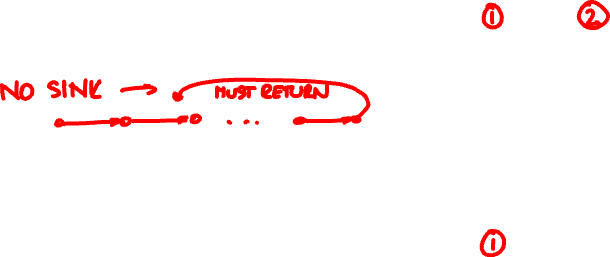 ① ②
NO SINK → MUST RETURN
...
①